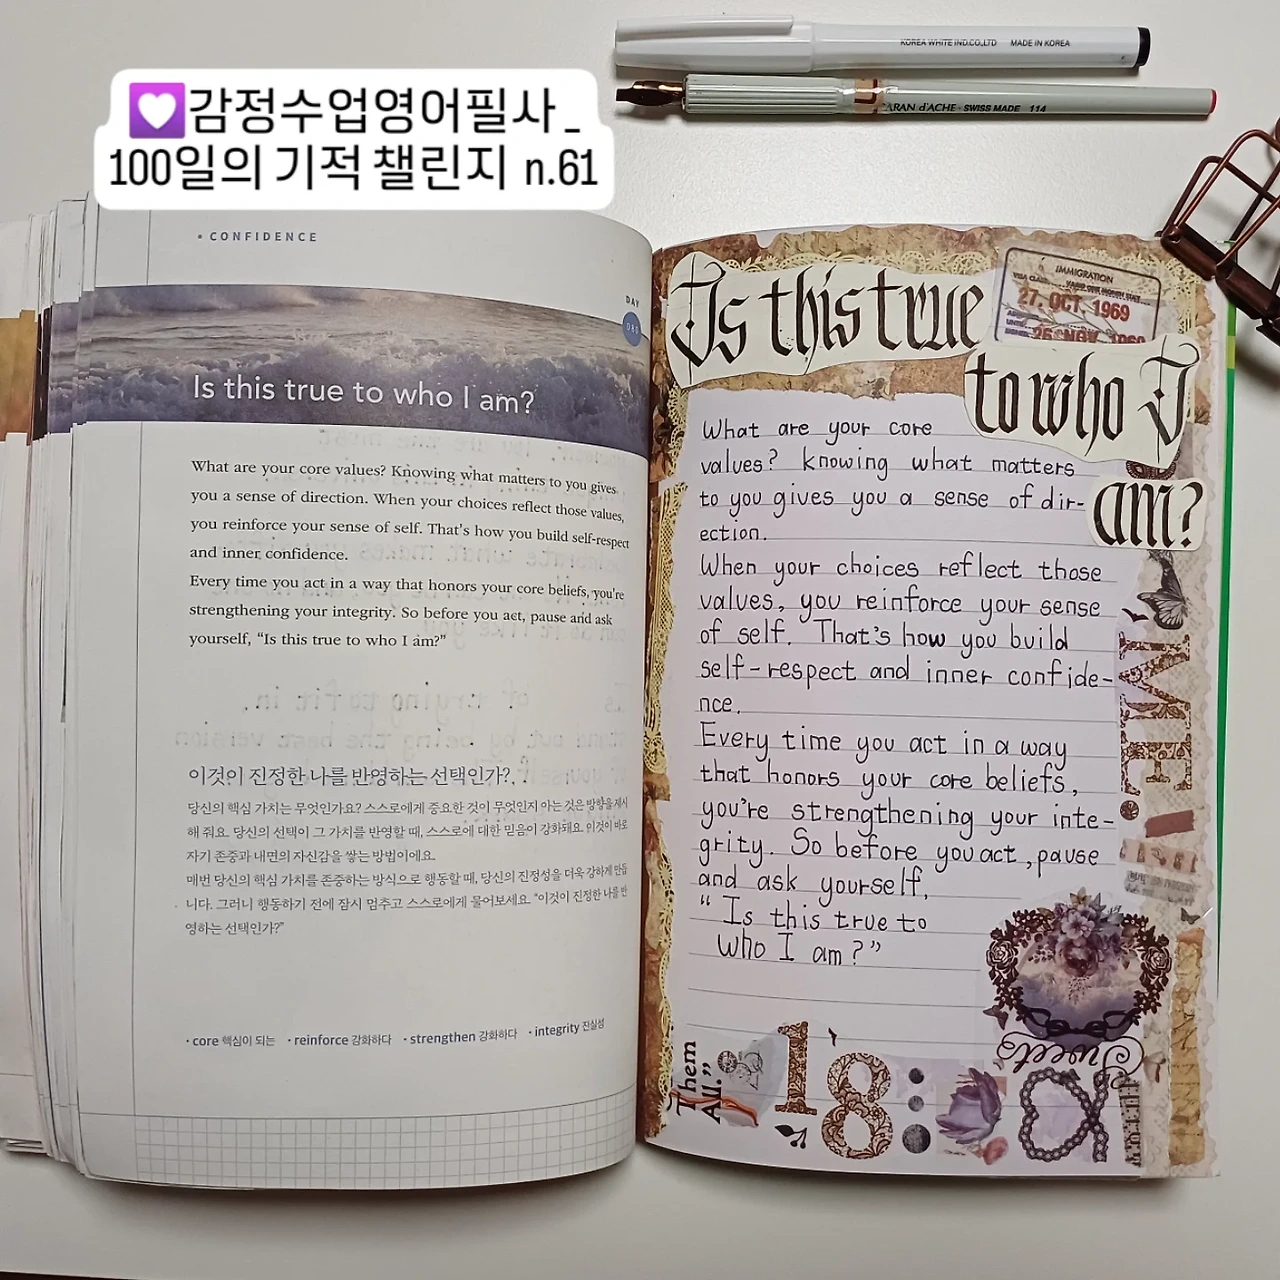 💟감정수업영어필사_
100일의 기적 챌린지 n.61
KOREA WHITE IND.CO.,LTD MADE IN KOREA
CARAN d'ACHE · SWISS MADE 114
• CONFIDENCE
DAY
Is this true to who I am?
What are your core values? Knowing what matters to you gives
you a sense of direction. When your choices reflect those values,
you reinforce your sense of self. That's how you build self-respect
and inner confidence.
Every time you act in a way that honors your core beliefs, you're
strengthening your integrity. So before you act, pause and ask
yourself, “Is this true to who I am?”
이것이 진정한 나를 반영하는 선택인가?
당신의 핵심 가치는 무엇인가요? 스스로에게 중요한 것이 무엇인지 아는 것은 방향을 제시
해 줘요. 당신의 선택이 그 가치를 반영할 때, 스스로에 대한 믿음이 강화돼요. 이것이 바로
자기 존중과 내면의 자신감을 쌓는 방법이에요.
매번 당신의 핵심 가치를 존중하는 방식으로 행동할 때, 당신의 진정성을 더욱 강하게 만듭
니다. 그러니 행동하기 전에 잠시 멈추고 스스로에게 물어보세요. “이것이 진정한 나를 반
영하는 선택인가?”
• core 핵심이 되는 • reinforce 강화하다 • strengthen 강화하다 • integrity 진실성
Is this true
to who I
am?
IMMIGRATION
27. OCT. 1969
26 NOV 1969
What are your core
values? Knowing what matters
to you gives you a sense of dir-
ection.
When your choices reflect those
values, you reinforce your sense
of self. That's how you build
self-respect and inner confide-
nce.
Every time you act in a way
that honors your core beliefs,
you're strengthening your inte-
grity. So before you act, pause
and ask yourself,
“ Is this true to
who I am?”
ME!
Sweets
Them
All.”
18